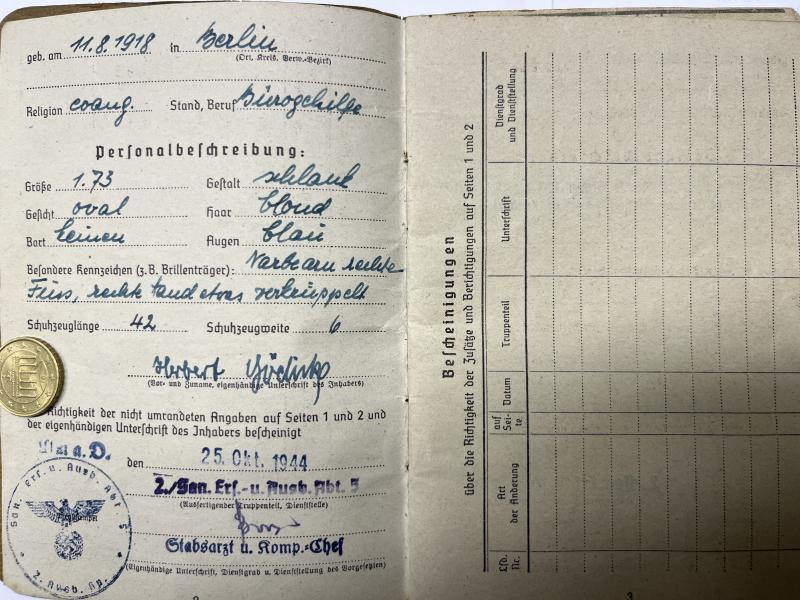 geb. am 11.8.1918 in Berlin
(Ort, Kreis, Verw.-Bezirk)
Religion evang. Stand, Beruf Bürogehilfe
Personalbeschreibung:
Größe 1.73 Gestalt schlank
Gesicht oval Haar blond
Bart keinen Augen blau
Besondere Kennzeichen (z.B. Brillenträger): Narbe am rechte
Fuss, rechte etwas verkrüppelt
Schuhzeuglänge 42 Schuhzeugweite 6
Herbert
(Vor- und Zuname, eigenhändige Unterschrift des Inhabers)
Richtigkeit der nicht umrandeten Angaben auf Seiten 1 und 2 und
der eigenhändigen Unterschrift des Inhabers bescheinigt
a.D. den 25. Okt. 1944
2./San. Ers.- u. Ausb. Abt. 5
(Ausfertigender Truppenteil, Dienststelle)
Stabsarzt u. Komp.-Chef
(Eigenhändige Unterschrift, Dienstgrad u. Dienststellung des Vorgesetzten)
San. Ers. u. Ausb. Abt 5
2. Ausb. Kp.
2
Bescheinigungen
über die Richtigkeit der Zusätze und Berichtigungen auf Seiten 1 und 2
Lfd.
Nr.
Art
der Änderung
auf
Sei-
te
Datum
Truppenteil
Unterschrift
Dienstgrad
und Dienststellung
3